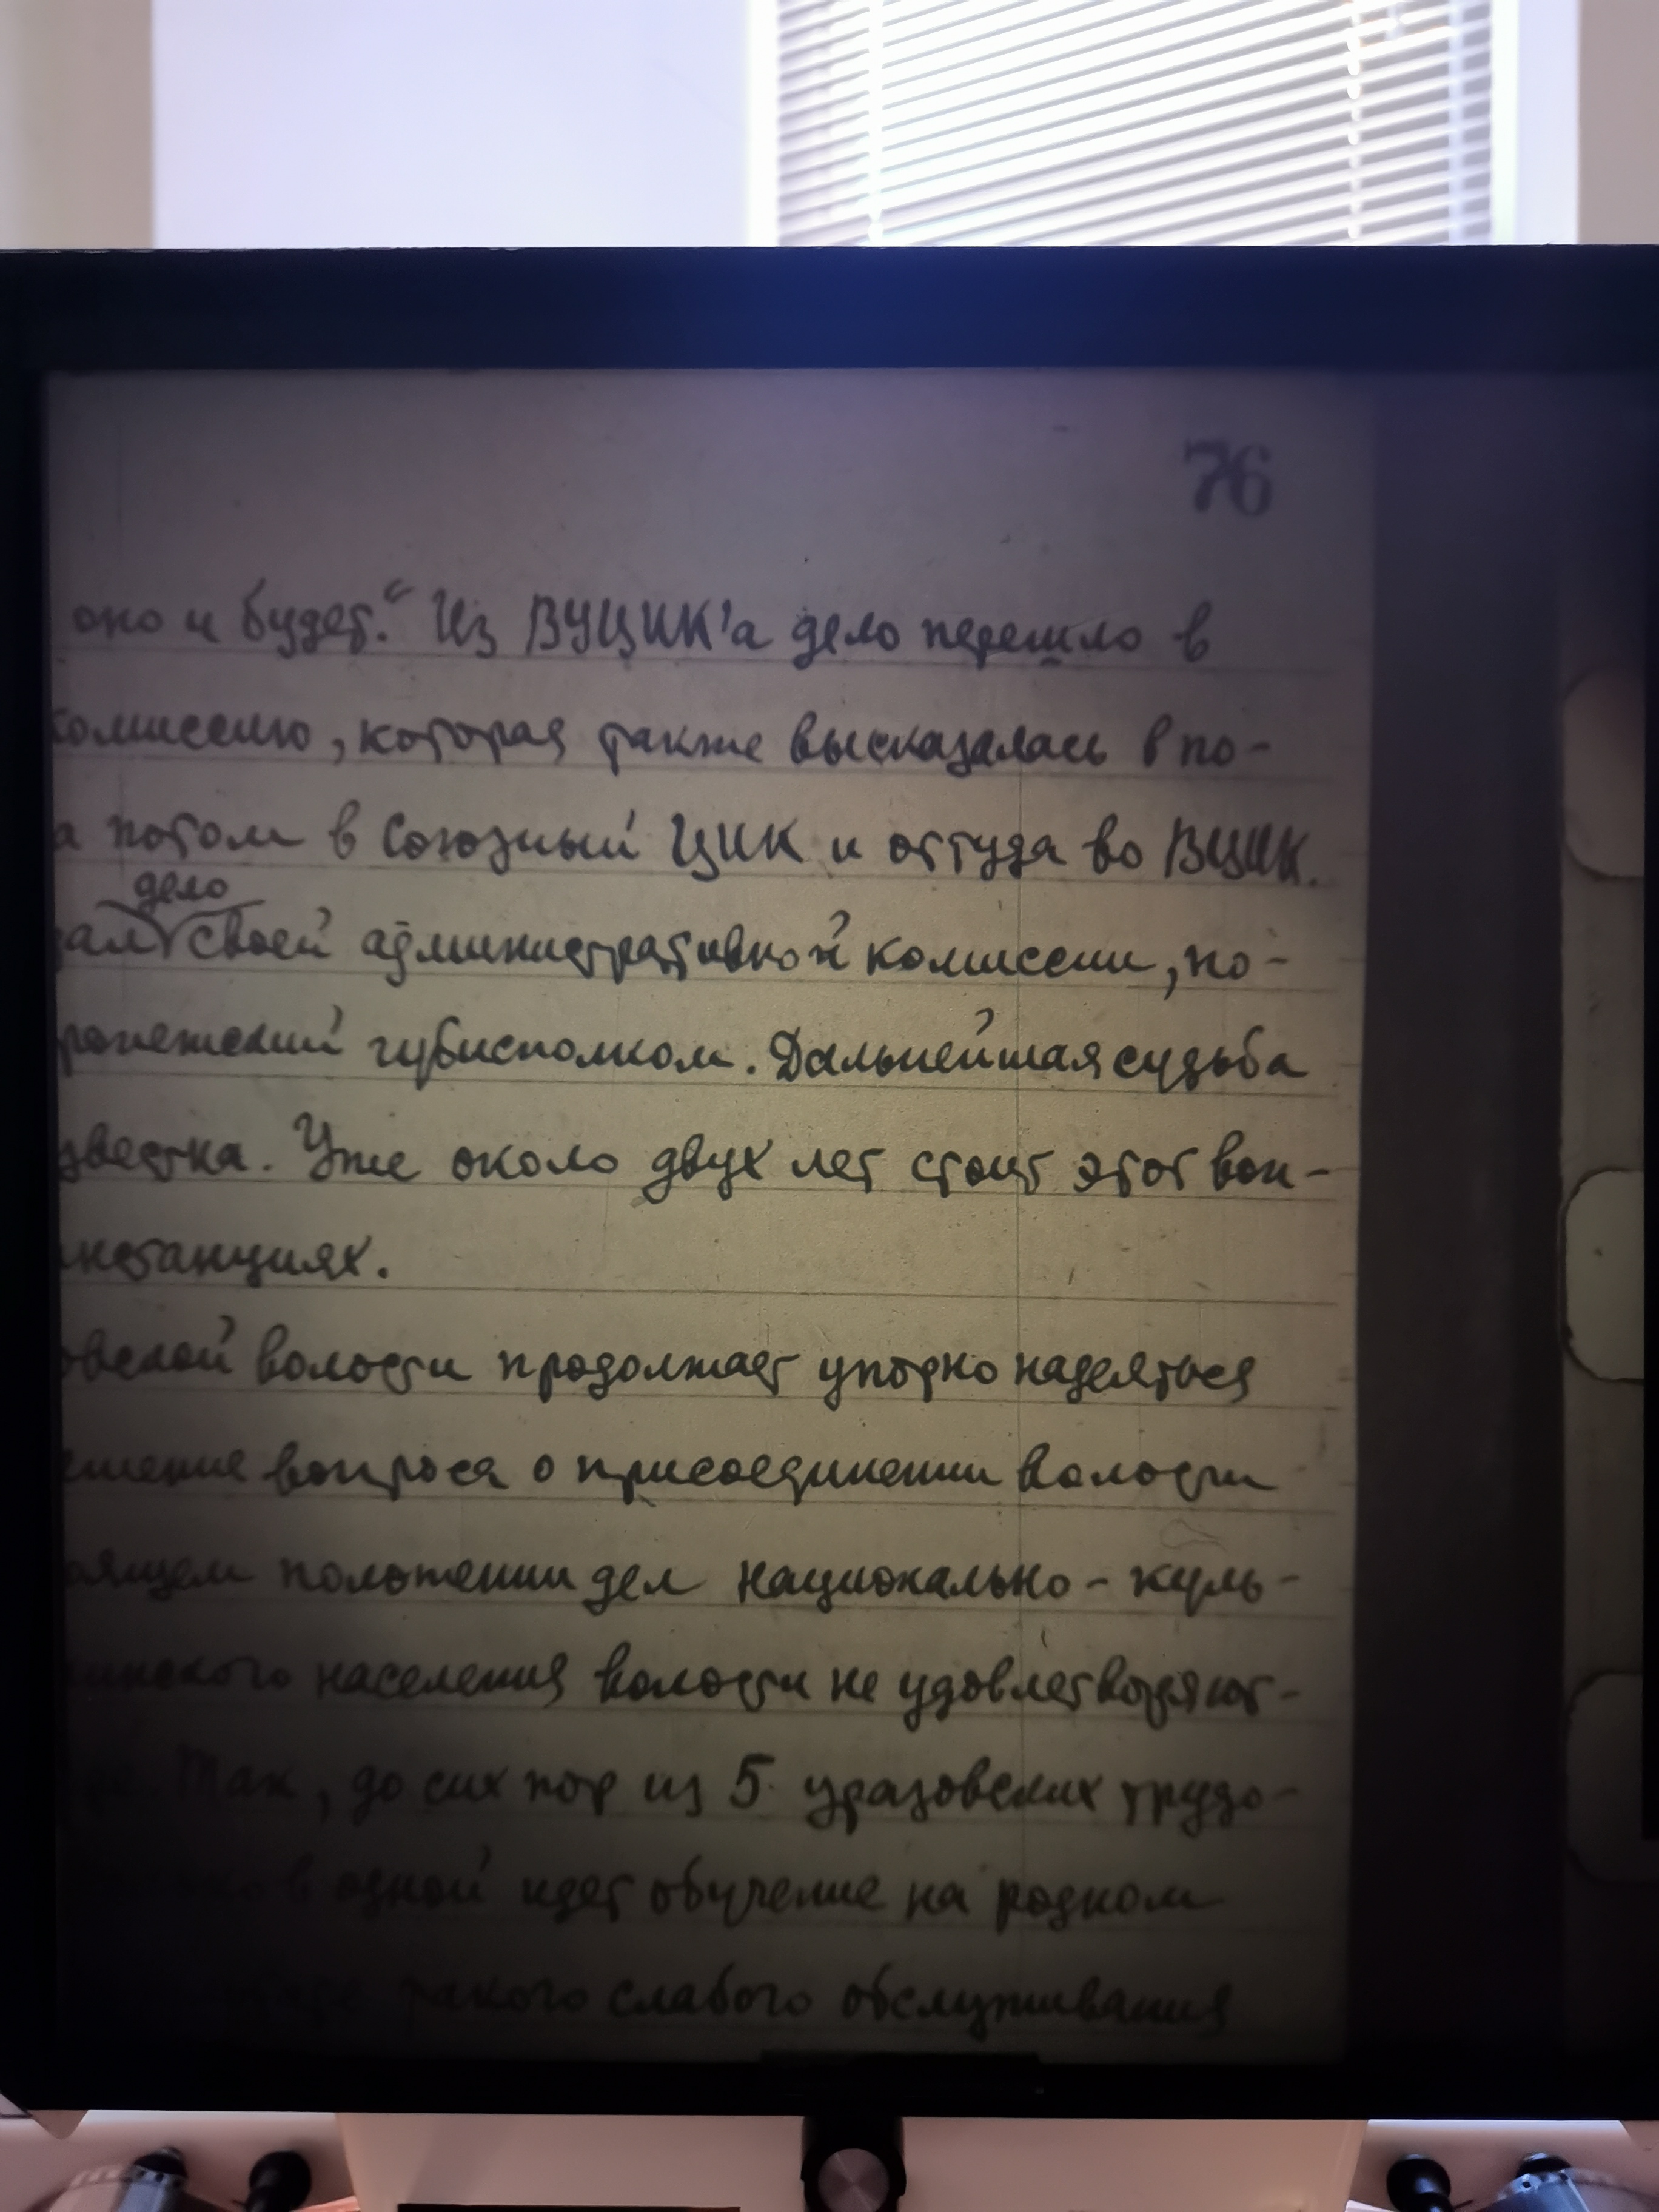 76
оно и будет." Из ВУЦИК'а дело перешло в
комиссию, которая также высказалась в по-
а потом в Союзный ЦИК и оттуда во ВЦИК.
дело
зал своей административной комиссии, по-
ронежский губисполком. Дальнейшая судьба
звестна. Уже около двух лет стоит этот воп-
инстанциях.
овской волости продолжает упорно надеяться
ешение вопроса о присоединении волости
оящем положении дел национально-куль-
инского населения волости не удовлетворяют-
Так, до сих пор из 5 уразовских трудо-
в одной идет обучение на родном
такого слабого обслуживания